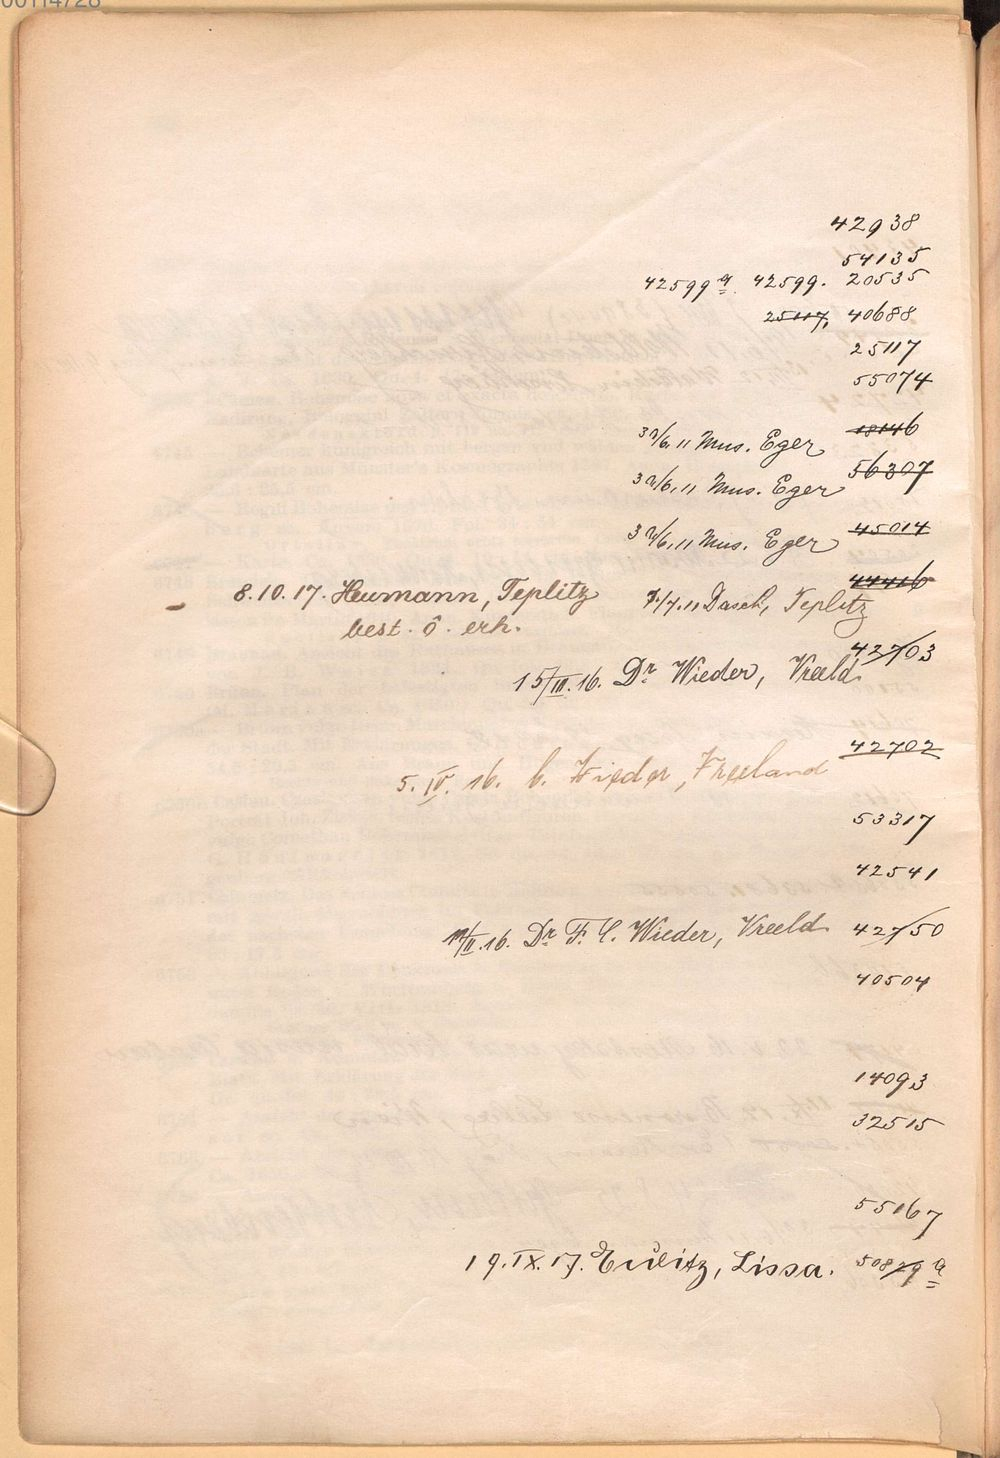 42938
54135
42599 a. 42599. 20535
25117, 40688
25117
55074
30/6.11 Mus. Eger 18146
30/6.11 Mus. Eger 56307
30/6.11 Mus. Eger 45014
44416
8.10.17. Heumann, Teplitz 7/7.11 Dasch, Teplitz
best. ô. erh.
42703
15/III.16. Dr Wieder, Vreeld.
42702
5. IV. 16. b. Wieder, Vreeland
53317
42541
16. Dr F. C. Wieder, Vreeld 42750
40504
14093
32515
55167
19.IX.17. Lissa. 50829 a